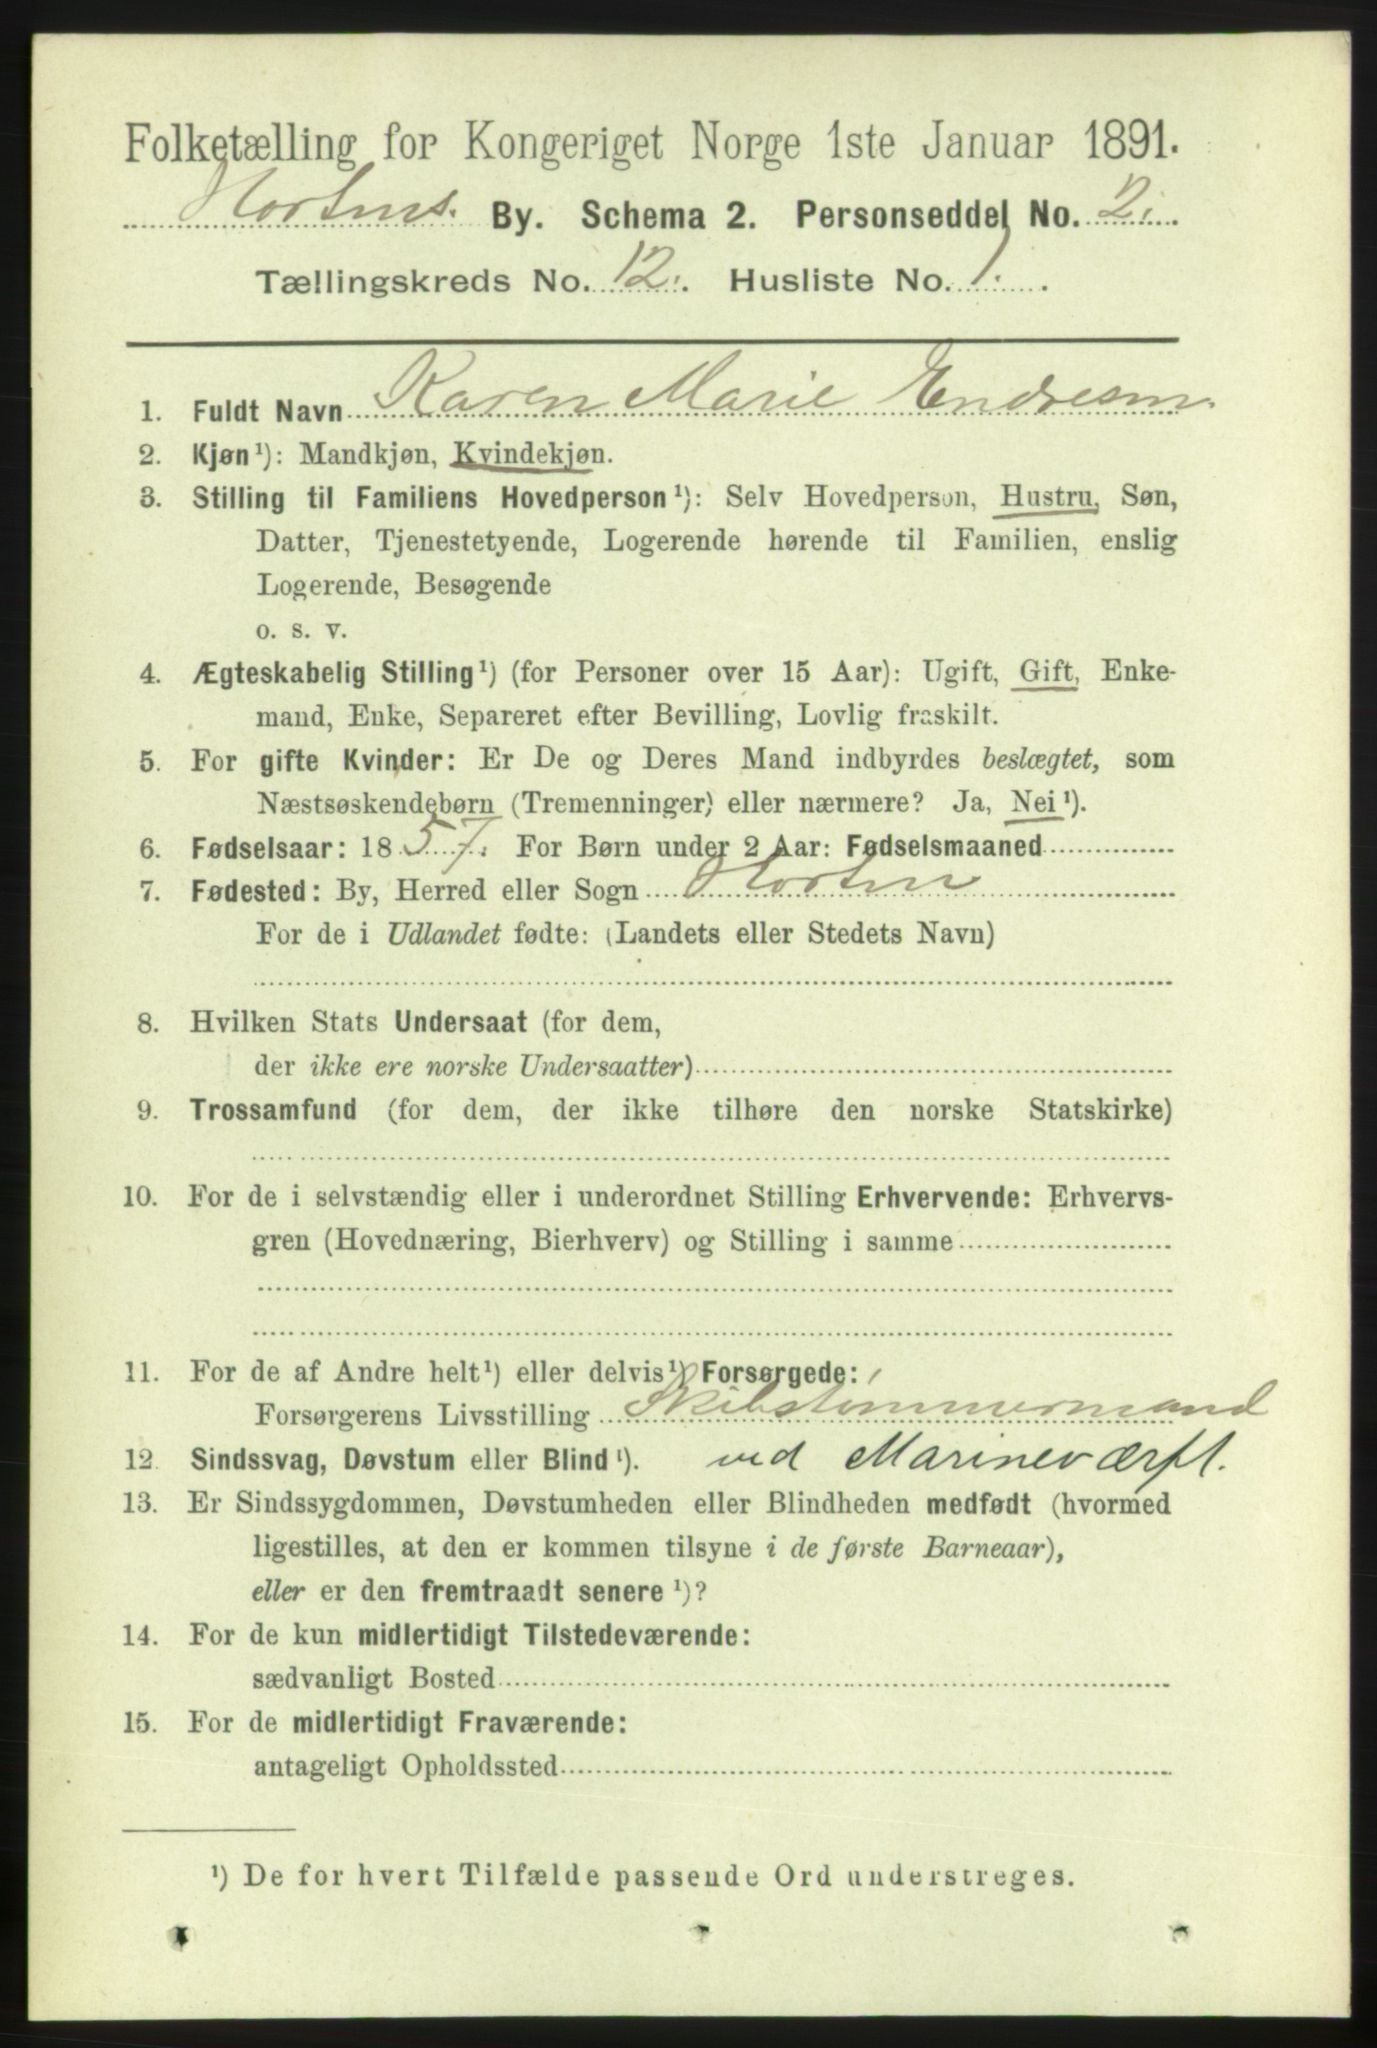 Folketælling for Kongeriget Norge 1ste Januar 1891.
Hortens. By. Schema 2. Personseddel No. 2.
Tællingskreds No. 12. Husliste No. 1.
1. Fuldt Navn Karen Marie Endresen.
2. Kjøn¹): Mandkjøn, Kvindekjøn.
3. Stilling til Familiens Hovedperson¹): Selv Hovedperson, Hustru, Søn,
Datter, Tjenestetyende, Logerende hørende til Familien, enslig
Logerende, Besøgende
o. s. v.
4. Ægteskabelig Stilling¹) (for Personer over 15 Aar): Ugift, Gift, Enke-
mand, Enke, Separeret efter Bevilling, Lovlig fraskilt.
5. For gifte Kvinder: Er De og Deres Mand indbyrdes beslægtet, som
Næstsøskendebørn (Tremenninger) eller nærmere? Ja, Nei¹).
6. Fødselsaar: 1857. For Børn under 2 Aar: Fødselsmaaned
7. Fødested: By, Herred eller Sogn Horten
For de i Udlandet fødte: (Landets eller Stedets Navn)
8. Hvilken Stats Undersaat (for dem,
der ikke ere norske Undersaatter)
9. Trossamfund (for dem, der ikke tilhøre den norske Statskirke)
10. For de i selvstændig eller i underordnet Stilling Erhvervende: Erhvervs-
gren (Hovednæring, Bierhverv) og Stilling i samme
11. For de af Andre helt¹) eller delvis¹) Forsørgede:
Forsørgerens Livsstilling Skibstømmermand
12. Sindssvag, Døvstum eller Blind¹). ved Marineværft.
13. Er Sindssygdommen, Døvstumheden eller Blindheden medfødt (hvormed
ligestilles, at den er kommen tilsyne i de første Barneaar),
eller er den fremtraadt senere¹)?
14. For de kun midlertidigt Tilstedeværende:
sædvanligt Bosted
15. For de midlertidigt Fraværende:
antageligt Opholdssted
¹) De for hvert Tilfælde passende Ord understreges.